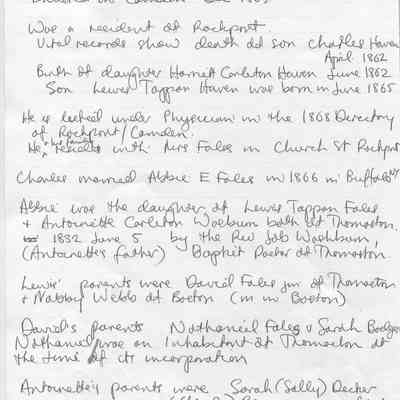 Was a resident of Rockport.
Vital records show death of son Charles Haven
April 1862
Birth of daughter Harriet Carleton Haven June 1862
Son Lewis Tappan Haven was born in June 1865
He is listed under Physicians in the 1868 Directory
of Rockport/Camden.
He & his family resided with Mrs Fales in Church St Rockport
Charles married Abbie E Fales in 1866 in Buffalo NY
Abbie was the daughter of Lewis Tappan Fales
+ Antoinette Carleton Washburn both of Thomaston.
1832 June 5 by the Rev Job Washburn,
(Antoinette's father) Baptist Pastor at Thomaston.
Lewis' parents were David Fales jnr of Thomaston
+ Nabby Webb of Boston (m in Boston)
David's parents Nathaniel Fales & Sarah
Nathaniel was an Inhabitant of Thomaston at
the time of its incorporation
Antoinette's parents were Sarah (Sally) Decker